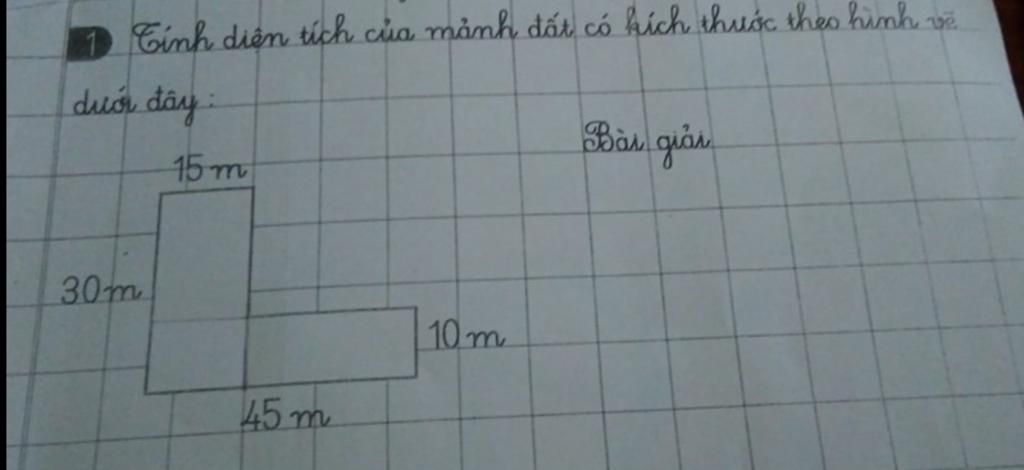 1 Tính diện tích của mảnh đất có kích thước theo hình vẽ
dưới đây:
Bài giải
15 m
30 m
10 m
45 m